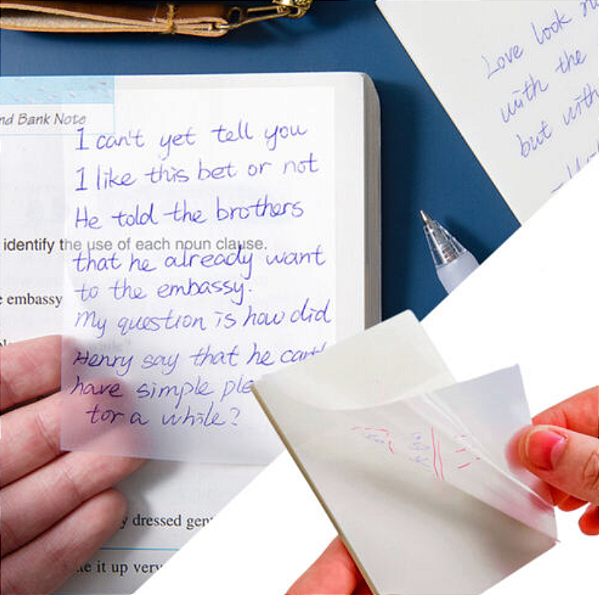 nd Bank Note
I can't yet tell you
I like this bet or not
He told the brothers
identify the use of each noun clause.
that he already want
e embassy
to the embassy.
My question is how did
Henry say that he can't
have simple ple
for a while?
y dressed gen
e it up very
Love look n
with the
but with